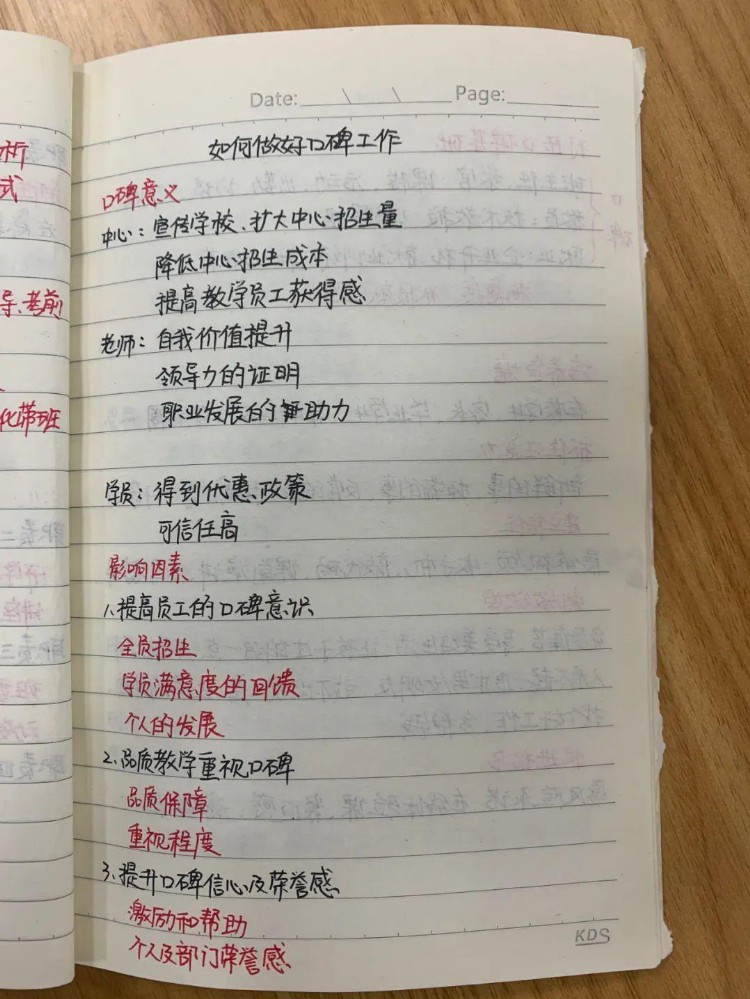 Date: / / Page:
如何做好口碑工作
口碑意义
中心：宣传学校、扩大中心招生量
降低中心招生成本
提高教学员工获得感
老师：自我价值提升
领导力的证明
职业发展的助力
学员：得到优惠政策
可信任高
影响因素
1、提高员工的口碑意识
全员招生
学员满意度的回馈
个人的发展
2、品质教学重视口碑
品质保障
重视程度
3、提升口碑信心及荣誉感
激励和帮助
个人及部门荣誉感
KDS
析
式
导、考前
化带班